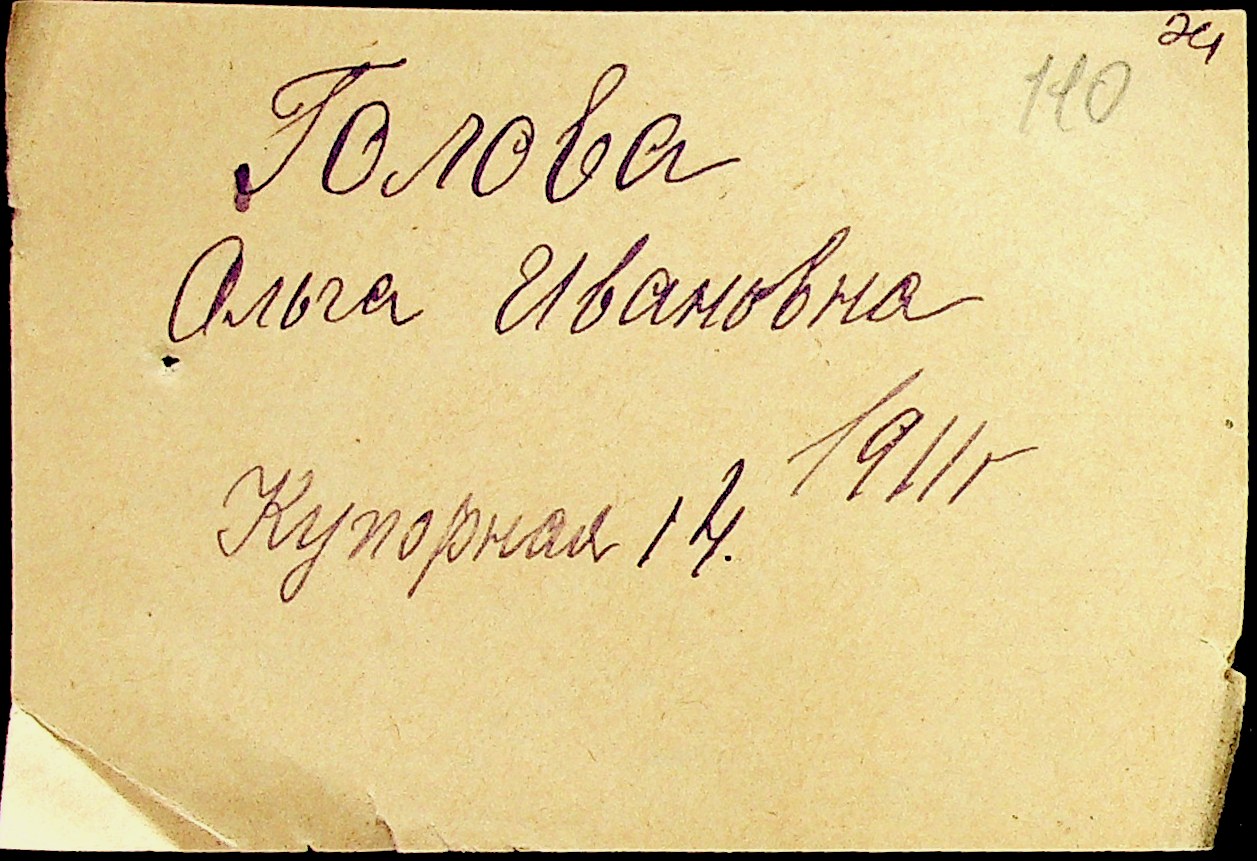 110
Голова
Ольга Ивановна
1911г
Купорная 14.